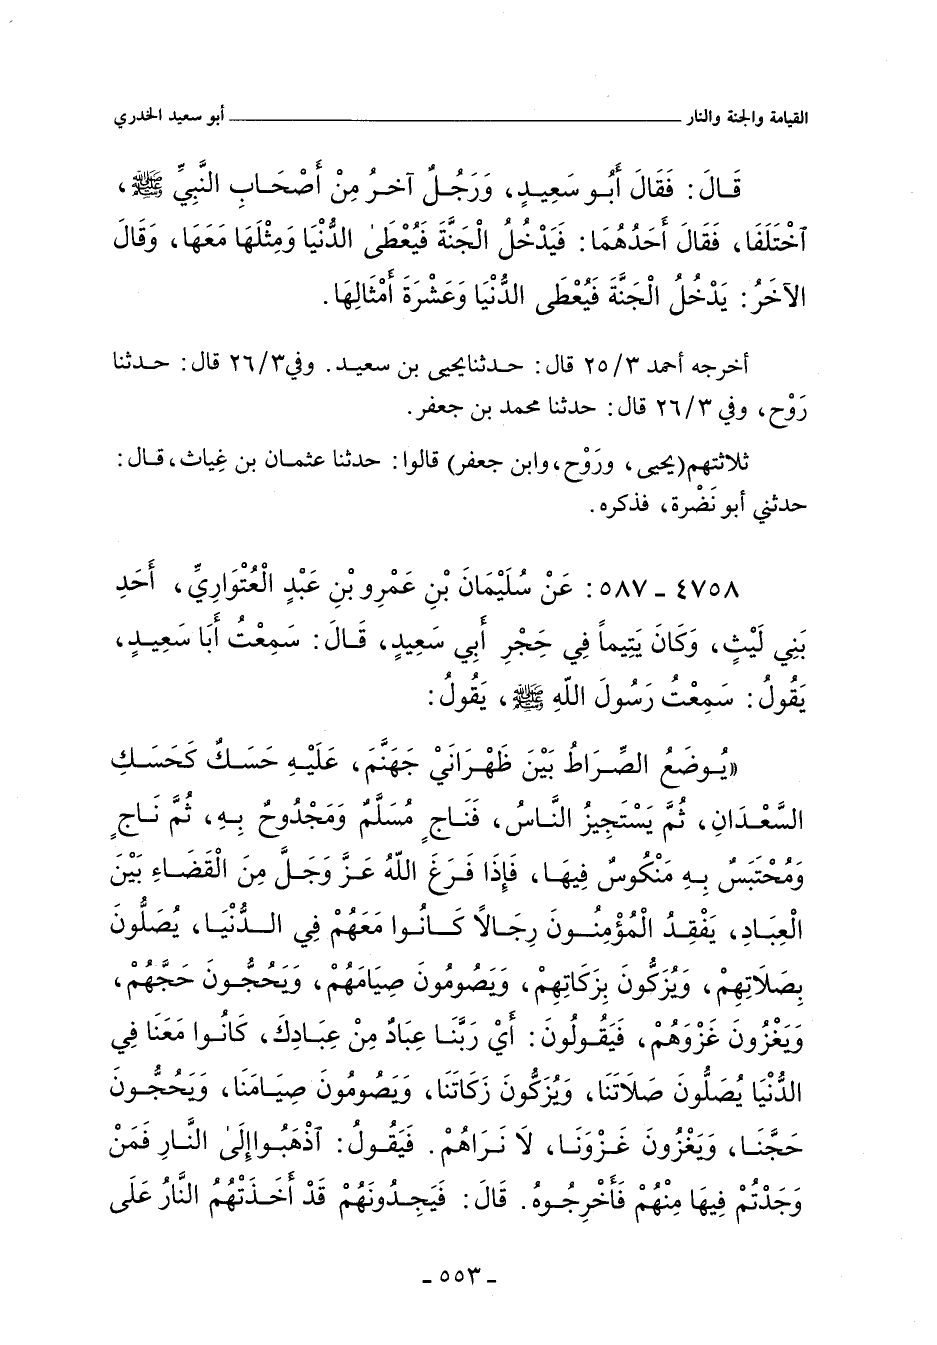 القيامة والجنة والنار ــــــــــــــــــــــــــــــــــــــــ أبو سعيد الخدري
قَـالَ: فَقَالَ أَبُـو سَعِيـدٍ، وَرَجُـلٌ آخـرُ مِنْ أَصْحَـابِ النَّبِيِّ ﷺ،
ٱخْتَلَفَا، فَقَالَ أَحَدُهُمَا: فَيَدْخُلُ الْجَنَّةَ فَيُعْطَىٰ الدُّنْيَا وَمِثْلَهَا مَعَهَا، وَقَالَ
الآخَرُ: يَدْخُلُ الْجَنَّةَ فَيُعْطَى الدُّنْيَا وَعَشْرَةَ أَمْثَالِهَا.
أخرجه أحمد ٢٥/٣ قال: حـدثنايحيى بن سعيـد. وفي٢٦/٣ قال: حـدثنا
رَوْح، وفي ٢٦/٣ قال: حدثنا محمد بن جعفر.
ثلاثتهم(يحيى، ورَوْح،وابن جعفر) قالوا: حدثنا عثمـان بن غِياث،قـال:
حدثني أبو نَضْرة، فذكره.
٤٧٥٨ ـ ٥٨٧: عَنْ سُلَيْمَانَ بْنِ عَمْرِو بْنِ عَبْدٍ الْعُتْوَارِيِّ، أَحَدِ
بَنِي لَيْثٍ، وَكَانَ يَتِيماً فِي حِجْرِ أَبِي سَعِيدٍ، قَـالَ: سَمِعْتُ أَبَا سَعِيـدٍ،
يَقُولُ: سَمِعْتُ رَسُولَ اللّهِ ﷺ، يَقُولُ:
«يُـوضَعُ الصِّـرَاطُ بَيْنَ ظَهْـرَانَيْ جَهَنَّمَ، عَلَيْـهِ حَسَـكٌ كَحَسَـكِ
السَّعْـدَانِ، ثُمَّ يَسْتَجِيزُ النَّاسُ، فَنَاجٍ مُسَلَّمٌ وَمَجْدُوحٌ بِـهِ، ثُمَّ نَـاجٍ
وَمُحْتَبَسٌ بِـهِ مَنْكُوسٌ فِيهَـا، فَإِذَا فَـرَغَ اللّهُ عَـزَّ وَجَـلَّ مِنَ الْقَضَـاءِ بَيْنَ
الْعِبَـادِ، يَفْقِـدُ الْمُؤْمِنُـونَ رِجَـالاً كَـانُـوا مَعَهُمْ فِي الـدُّنْيَـا، يُصَلُّونَ
بِصَلَاتِهِمْ، وَيُزَكُّونَ بِزَكَاتِهِمْ، وَيَصُومُونَ صِيَامَهُمْ، وَيَحُجُّـونَ حَجَّهُمْ،
وَيَغْزُونَ غَزْوَهُمْ، فَيَقُـولُونَ: أَيْ رَبَّنَـا عِبَادٌ مِنْ عِبَـادِكَ، كَانُـوا مَعَنَا فِي
الدُّنْيَا يُصَلُّونَ صَلَاتَنَا، وَيُزَكُّونَ زَكَاتَنَا، وَيَصُومُونَ صِيَـامَنَا، وَيَحُجُّـونَ
حَجَّنَـا، وَيَغْزُونَ غَـزْوَنَـا، لَا نَـرَاهُمْ. فَيَقُـولُ: ٱذْهَبُـواإِلَىٰ النَّـارِ فَمَنْ
وَجَدْتُمْ فِيهَا مِنْهُمْ فَأَخْرِجُـوهُ. قَالَ: فَيَجِـدُونَهُمْ قَدْ أَخَـذَتْهُمُ النَّارُ عَلَى
ـ ٥٥٣ ـ